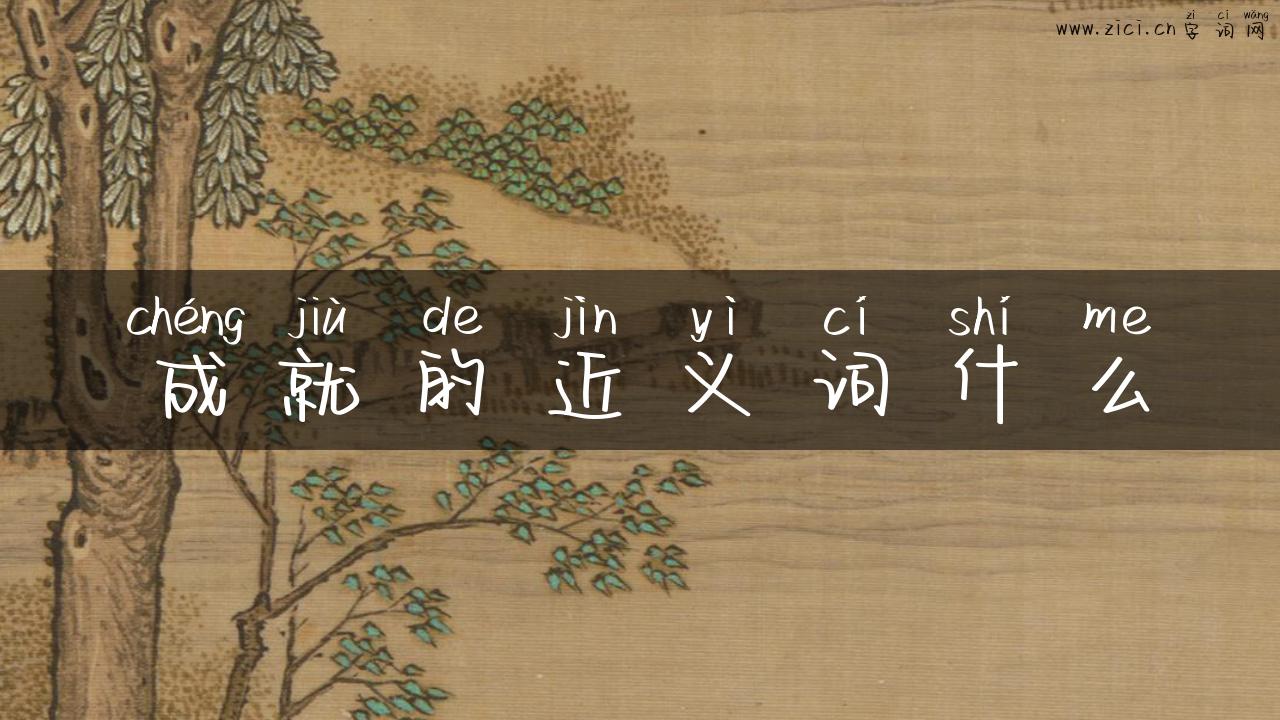 zì cí wǎng
www.zici.cn 字词网
chéng jiù de jìn yì cí shí me
成就的近义词什么